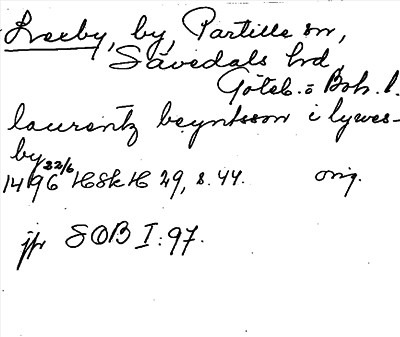 Lexby, by, Partille sn,
Sävedals hd,
Göteb. o Boh. l.
laurentz beyntsson i lywes-
by
1496 22/6 HSkH 29, s. 44. orig.
jfr SOB I: 97.